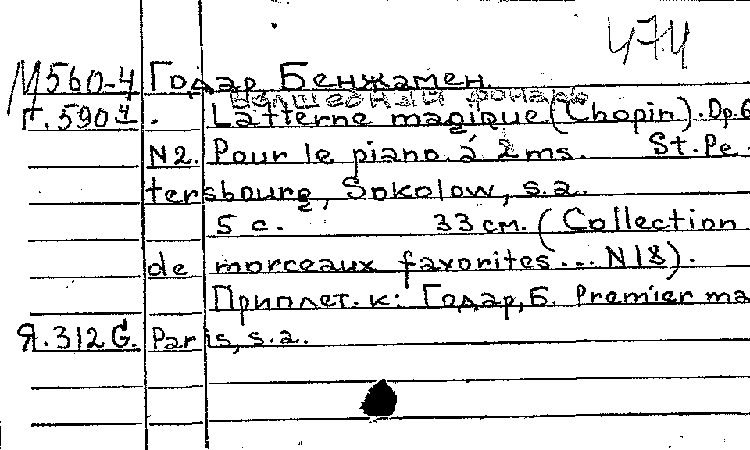 474
М560-4 Годар, Бенжамен
Волшебный фонарь
Г.5904. Latterne magique (Chopin). Op.6
N2. Pour le piano à 2 ms. St. Pe-
tersbourg, Sokolow, s.a.
5 с. 33 см. (Collection
de morceaux favorites... N18).
Приплет. к: Годар, Б. Premier ma
Я.312 G. Paris, s.a.